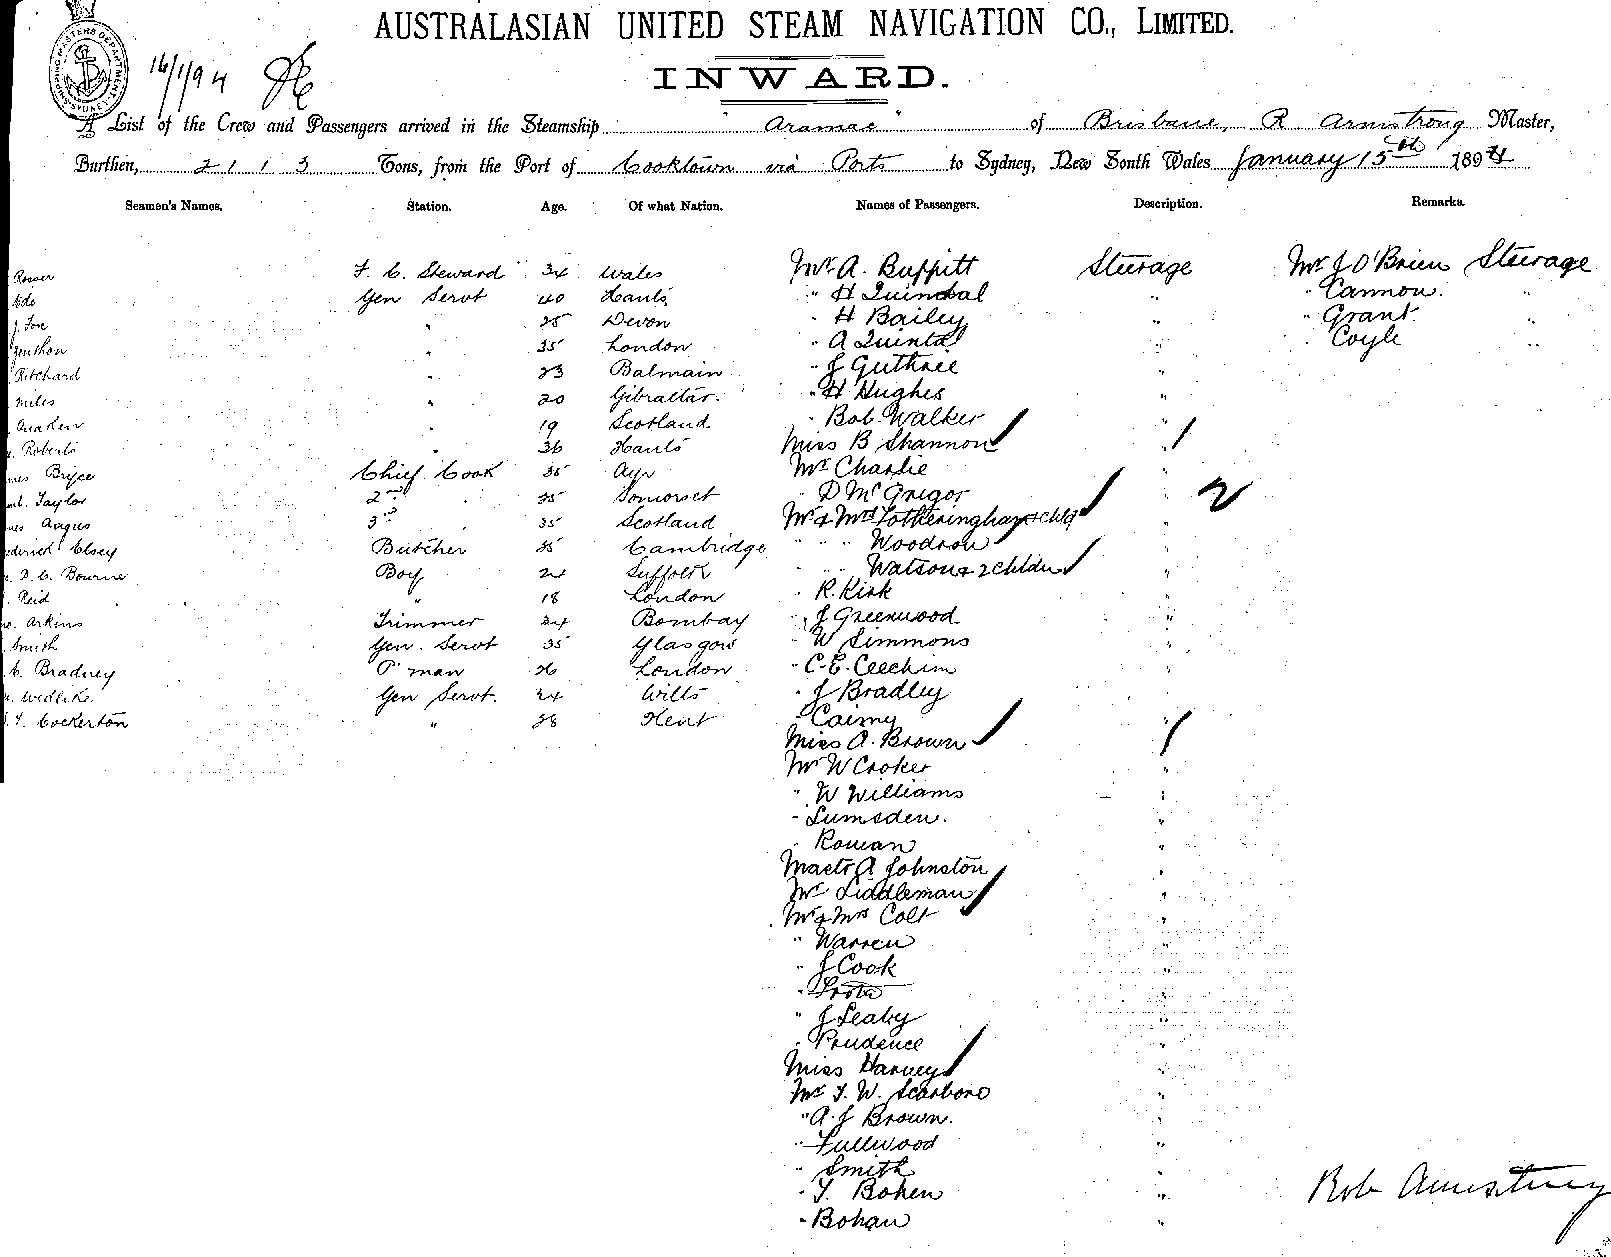 AUSTRALASIAN UNITED STEAM NAVIGATION CO., LIMITED.
16/1/94
INWARD.
A List of the Crew and Passengers arrived in the Steamship "Aramac" of Brisbane, R Armstrong Master,
Burthen, 2113 Tons, from the Port of Cooktown via Ports to Sydney, New South Wales January 15th 1894
Seamen's Names. Station. Age. Of what Nation. Names of Passengers. Description. Remarks.
F. C. Steward 34 Wales Mr A. Buffitt Steerage Mr J O'Brien Steerage
Gen Servt 40 Hants " H Quindal " " Cannon. "
" 25 Devon " H Bailey " " Grant "
" 35 London " A Quintal " " Coyle "
Pritchard " 23 Balmain " J Guthrie "
Miles " 20 Gibraltar. " H Hughes "
" 19 Scotland " Bob Walker "
Roberts " 36 Hants Miss B Shannon "
mes Bryce Chief Cook 35 Ayr Mr Charlie "
Taylor 2nd " 25 Somerset " D McGrigor " 2
mes Angus 3rd 35 Scotland Mr & Mrs Fotheringham & chld "
ederick Elsey Butcher 25 Cambridge " " " Woodrow "
D. C. Bourne Boy 24 Suffolk " " Watson & 2 chldn "
Reid " 18 London " R. Kirk "
Arkins Trimmer 34 Bombay " J Greenwood "
Smith Gen. Servt 35 Glasgow " W Simmons "
C. Bradney P man 26 London " C. E. Ceechim "
Wedlike Gen Servt. 24 Wilts " J Bradley "
T. Cockerton " 28 Kent " Cairny "
Miss A. Brown "
Mr W Crooker "
" W Williams "
" Lumsden. "
" Rowan "
Mastr A Johnston "
Mr Liddleman "
Mr & Mrs Colt "
" Warren "
" J Cook "
" J Leahy "
" Prudence "
Miss Harvey "
Mr T. W. Scarboro "
" A. J Brown. "
" Fullwood "
" Smith "
" T. Bohen "
" Bohan "
Rob Armstrong